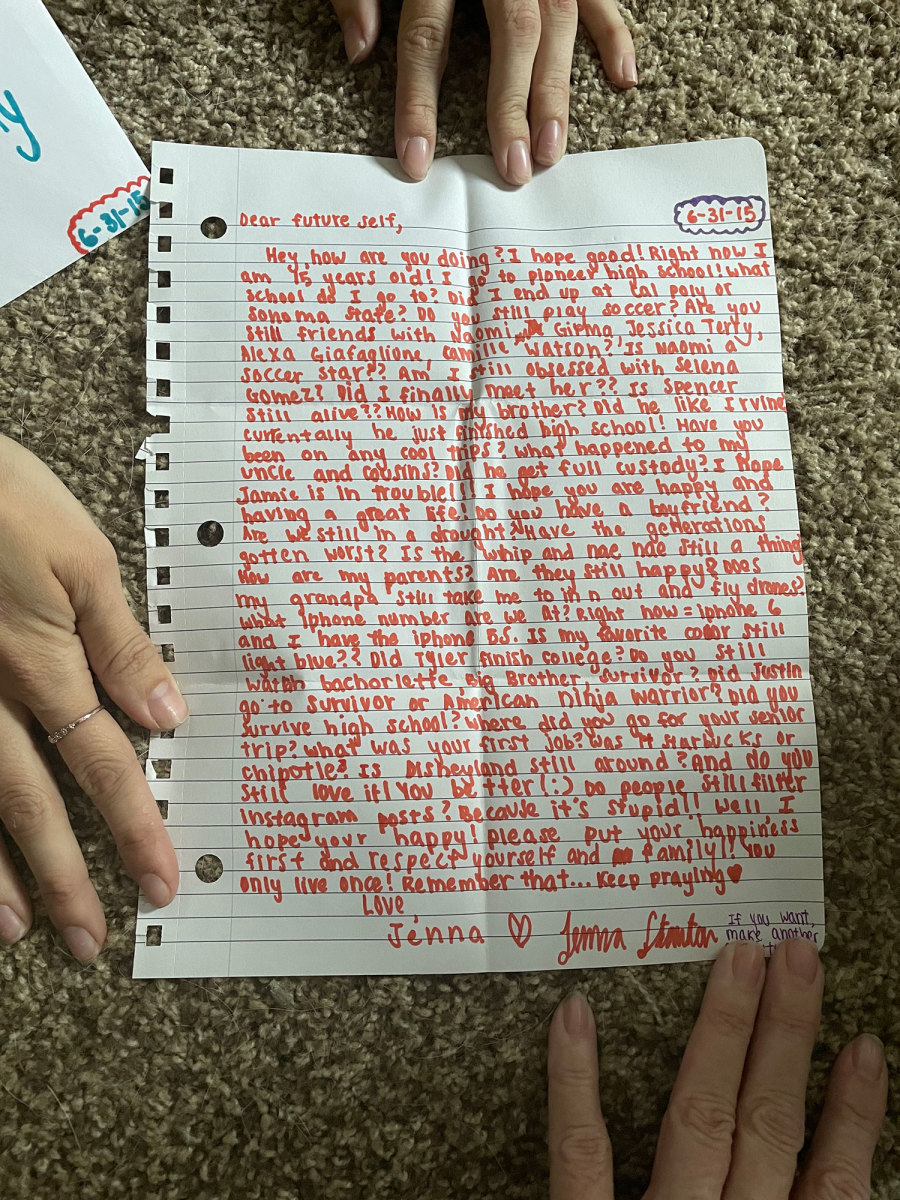 y
6-31-15
6-31-15
Dear future self,
Hey how are you doing? I hope good! Right now I
am 15 years old! I go to pioneer high school! What
school do I go to? Did I end up at cal poly or
sonoma state? Do you still play soccer? Are you
still friends with Naomi Girma, Jessica Terry,
Alexa Giafaglione, camille Watson? Is Naomi a
soccer star?? Am I still obsessed with selena
Gomez? Did I finally meet her?? Is spencer
still alive?? How is my brother? Did he like Irvine
currentally he just finished high school! Have you
been on any cool trips? What happened to my
uncle and cousins? Did he get full custody? I hope
Jamie is in trouble!! I hope you are happy and
having a great life. Do you have a boyfriend?
Are we still in a drought? Have the generations
gotten worst? Is the whip and nae nae still a thing
How are my parents? Are they still happy? Does
my grandpa still take me to in n out and fly drones?
What iphone number are we at? Right now = iphone 6
and I have the iphone 5s. Is my favorite color still
light blue?? Did Tyler finish college? Do you still
watch bachorlette, Big Brother, survivor? Did Justin
go to survivor or American ninja warrior? Did you
survive high school? Where did you go for your senior
trip? What was your first job? Was it starbucks or
chipotle? Is Disneyland still around? And do you
still love it! You better (:) Do people still filter
Instagram posts? Because it's stupid!! Well I
hope your happy! please put your happiness
first and respect yourself and family!! You
only live once! Remember that... Keep praying♥
Love,
Jenna ♡ Jenna Stanton
If you want,
make another